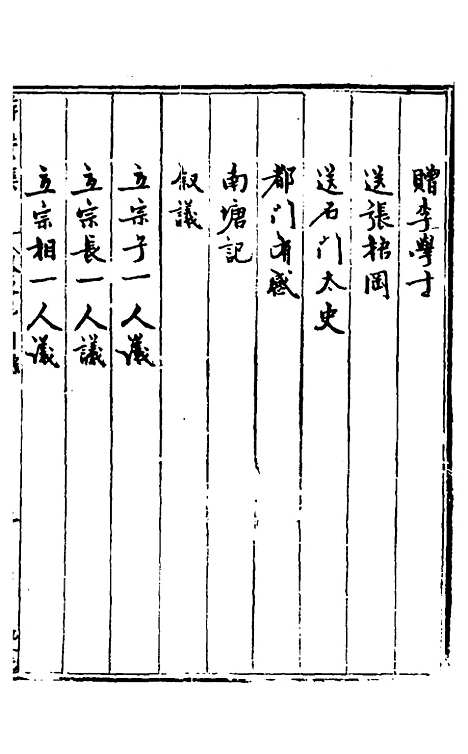 贈李學士
送張梧岡
送石門太史
都門有感
南塘記
叙議
立宗子一人議
立宗長一人議
立宗相一人議